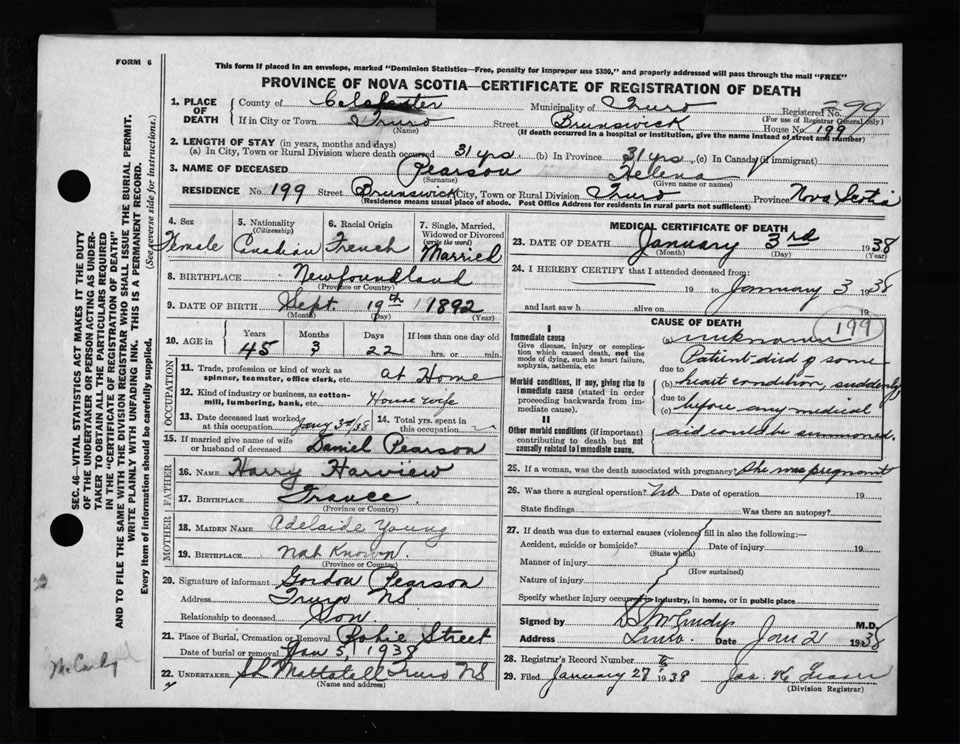 FORM 6
This form if placed in an envelope, marked "Dominion Statistics—Free, penalty for improper use $300," and properly addressed will pass through the mail "FREE"
PROVINCE OF NOVA SCOTIA—CERTIFICATE OF REGISTRATION OF DEATH
1. PLACE OF DEATH
County of Colchester Municipality of Truro Registered No. 99
(For use of Registrar General only)
If in City or Town Truro Street Brunswick House No. 199
(Name) (If death occurred in a hospital or institution, give the name instead of street and number)
2. LENGTH OF STAY (in years, months and days)
(a) In City, Town or Rural Division where death occurred 31 yrs (b) In Province 31 yrs (c) In Canada (if immigrant)
3. NAME OF DECEASED Pearson Helena
(Surname) (Given name or names)
RESIDENCE No. 199 Street Brunswick City, Town or Rural Division Truro Province Nova Scotia
(Residence means usual place of abode. Post Office Address for residents in rural parts not sufficient)
4. Sex 5. Nationality 6. Racial Origin 7. Single, Married,
(Citizenship) Widowed or Divorced
(write the word)
Female Canadian French Married
8. BIRTHPLACE Newfoundland
(Province or Country)
9. DATE OF BIRTH Sept. 19th 1892
(Month) (Day) (Year)
10. AGE IN Years Months Days If less than one day old
45 3 22 hrs. or min.
OCCUPATION
11. Trade, profession or kind of work as
spinner, teamster, office clerk, etc. at Home
12. Kind of industry or business, as cotton-
mill, lumbering, bank, etc. House wife
13. Date deceased last worked 14. Total yrs. spent in
at this occupation Jany 3rd/38 this occupation
15. If married give name of wife
or husband of deceased Daniel Pearson
FATHER
16. NAME Harry Harview
17. BIRTHPLACE France
(Province or Country)
MOTHER
18. MAIDEN NAME Adelaide Young
19. BIRTHPLACE Not Known
(Province or Country)
20. Signature of informant Gordon Pearson
Address Truro NS
Relationship to deceased Son
21. Place of Burial, Cremation or Removal Robie Street
Date of burial or removal Jan 5, 1938
22. UNDERTAKER Mattatall Truro NS
(Name and address)
MEDICAL CERTIFICATE OF DEATH
23. DATE OF DEATH January 3rd 1938
(Month) (Day) (Year)
24. I HEREBY CERTIFY that I attended deceased from:
19 to January 3 1938
and last saw h alive on 19
CAUSE OF DEATH 199
I
Immediate cause
Give disease, injury or complication which caused death, not the mode of dying, such as heart failure, asphyxia, asthenia, etc
(a) unknown
Patient died of some
due to
Morbid conditions, if any, giving rise to immediate cause (stated in order proceeding backwards from immediate cause).
(b) heart condition, suddenly
due to
(c) before any medical
II
Other morbid conditions (if important) contributing to death but not causally related to immediate cause.
aid could be summoned.
25. If a woman, was the death associated with pregnancy? She was pregnant
26. Was there a surgical operation? No Date of operation 19
State findings Was there an autopsy?
27. If death was due to external causes (violence) fill in also the following:—
Accident, suicide or homicide? Date of injury 19
(State which)
Manner of injury
(How sustained)
Nature of injury
Specify whether injury occurred in industry, in home, or in public place
Signed by M.D.
Address Truro. Date Jan 21 1938
28. Registrar's Record Number
29. Filed January 27, 1938 Jas. K Fraser
(Division Registrar)
SEC. 46—VITAL STATISTICS ACT MAKES IT THE DUTY
OF THE UNDERTAKER OR PERSON ACTING AS UNDER-
TAKER TO OBTAIN ALL THE PARTICULARS REQUIRED
IN THE "CERTIFICATE OF REGISTRATION OF DEATH"
AND TO FILE THE SAME WITH THE DIVISION REGISTRAR WHO SHALL ISSUE THE BURIAL PERMIT.
WRITE PLAINLY WITH UNFADING INK. THIS IS A PERMANENT RECORD.
Every item of information should be carefully supplied. (See reverse side for instructions.)